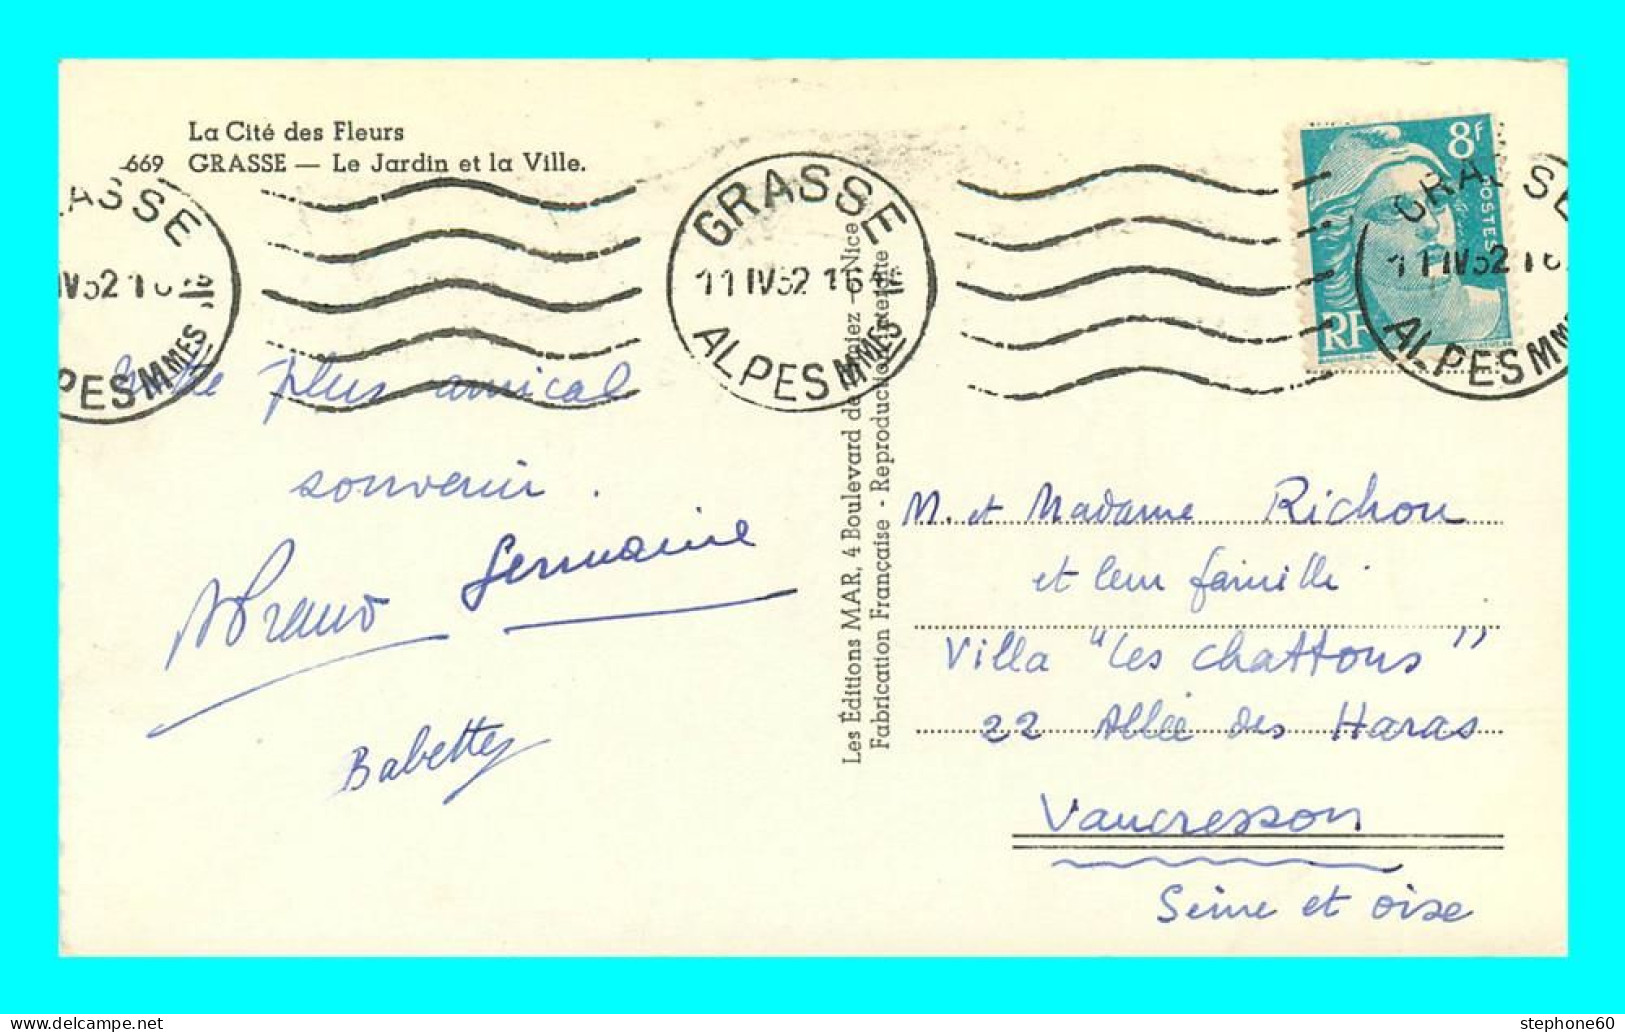 La Cité des Fleurs
669 GRASSE — Le Jardin et la Ville.
ASSE
IV 52 16
PES MMES
GRASSE
11 IV 52 16
ALPES MMES
8F
POSTES
RF
GRASSE
11 IV 52 16
ALPES MM
plus amical
souvenir.
Germaine
Babette
Les Éditions MAR, 4 Boulevard de - Nice
Fabrication Française - Reproduction Interdite
M. et Madame Richou
et leur famille.
Villa "Les Chattons"
22 Allée des Haras
Vaucresson
Seine et Oise
stephone60